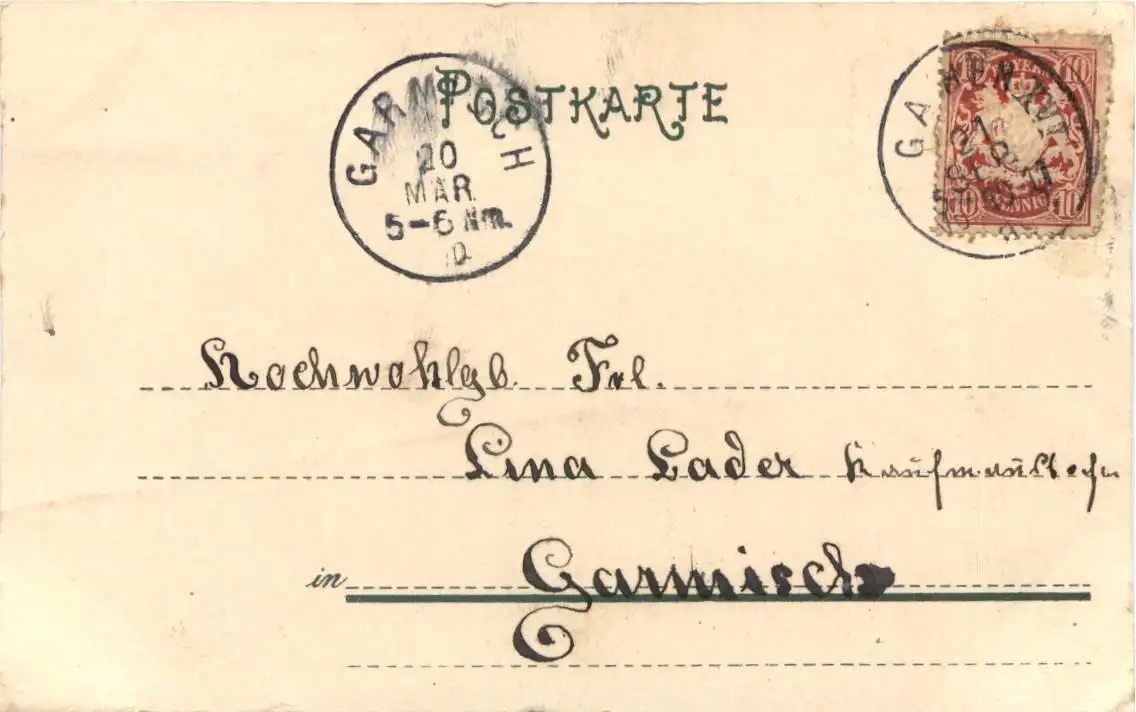 POSTKARTE
GARMISCH
20
MAR
5-6 Nm.
BAYERN
10 10
10 PFENNIG 10
Hochwohlgb. Frl.
Lina Lader
in Garmisch